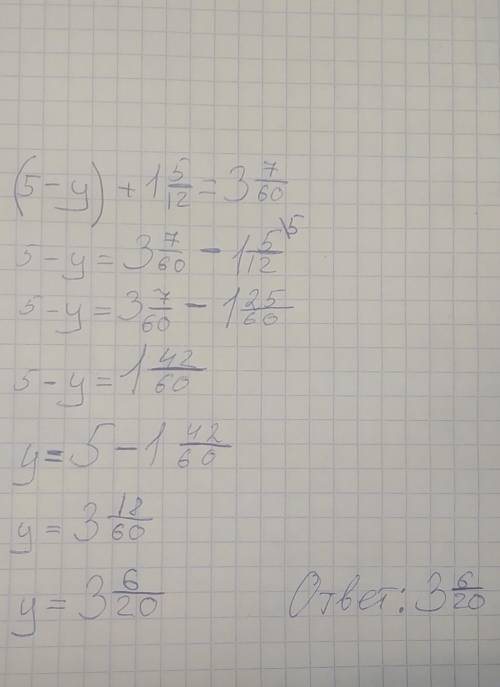 (5 - y) + 1 5/12 = 3 7/60
5 - y = 3 7/60 - 1 5/12 \5
5 - y = 3 7/60 - 1 25/60
5 - y = 1 42/60
y = 5 - 1 42/60
y = 3 18/60
y = 3 6/20 Ответ: 3 6/20